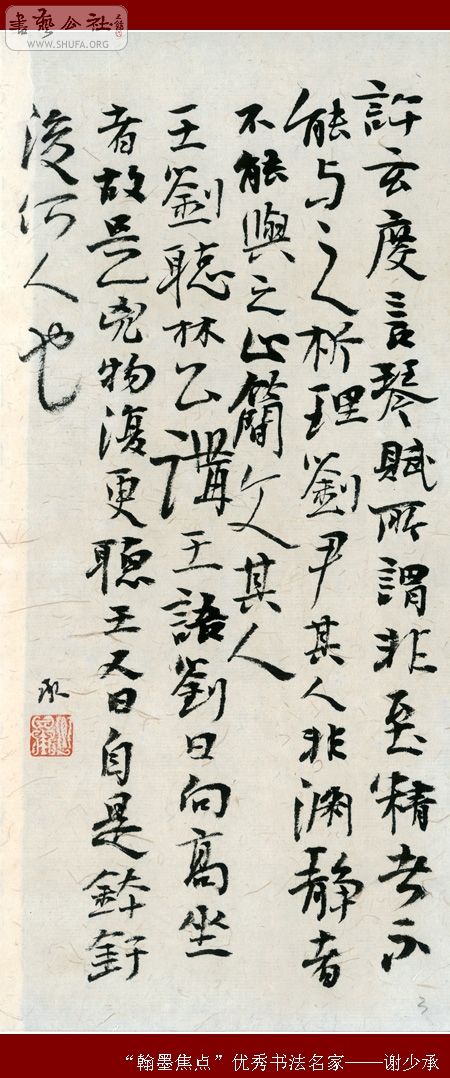 書藝公社
WWW.SHUFA.ORG
許玄度言琴賦所謂非至精者不
能与之析理劉尹其人非渊静者
不能與之止簡文其人
王劉聽林公講王語劉曰向高坐
者故是兇物復更聽王又曰自是鉢釪
後何人也
承
3
“翰墨焦点”优秀书法名家——谢少承